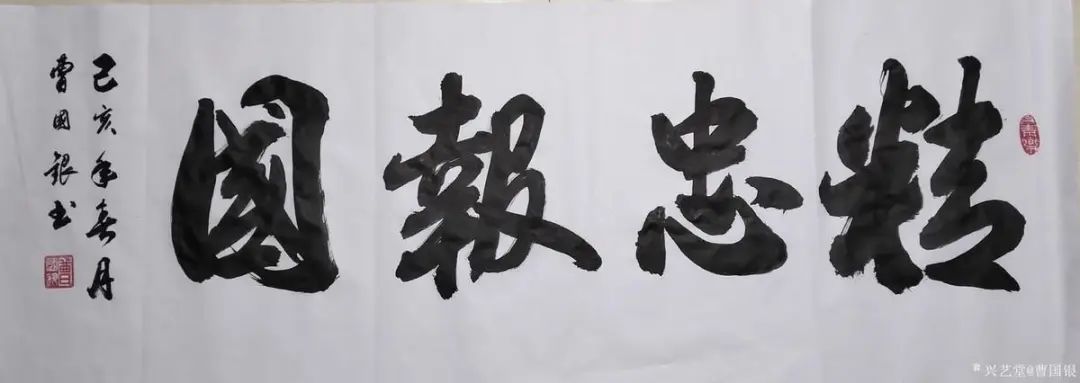 精忠報國
己亥年春月
曹國銀书
兴艺堂@曹国银